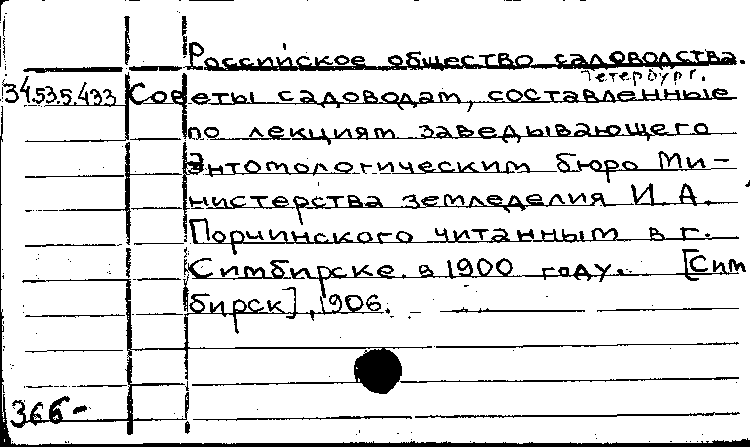 Российское общество садоводства.
Петербург.
34.53.5.433 Советы садоводам, составленные
по лекциям заведывающего
Энтомологическим бюро Ми-
нистерства земледелия И. А.
Порчинского читанным в г.
Симбирске в 1900 году. [Сим
бирск], 1906.
366-